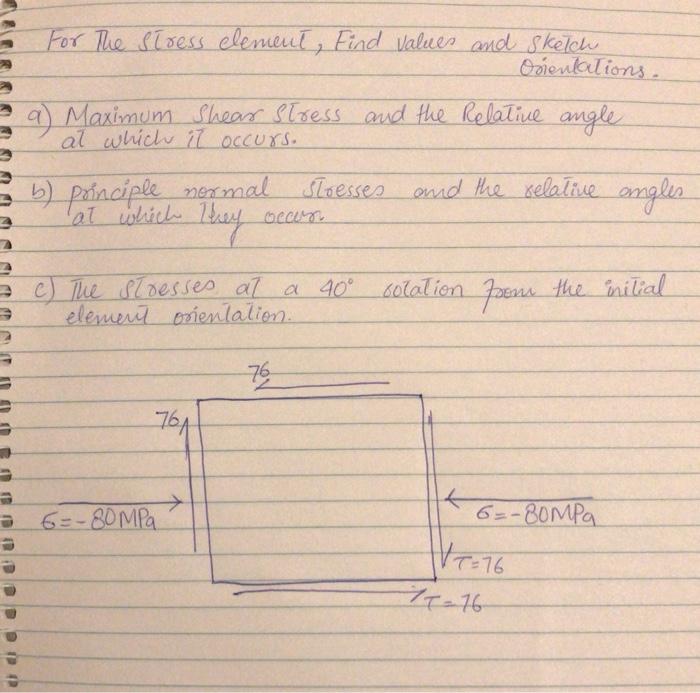 For The Stress element, Find values and Sketch
Orientations.
a) Maximum Shear Stress and the Relative angle
at which it occurs.
b) principle normal stresses and the relative angles
at which They occur
c) The stresses at a 40° rotation from the initial
element orientation.
76
76
σ=-80MPa
σ=-80MPa
τ=76
τ=76